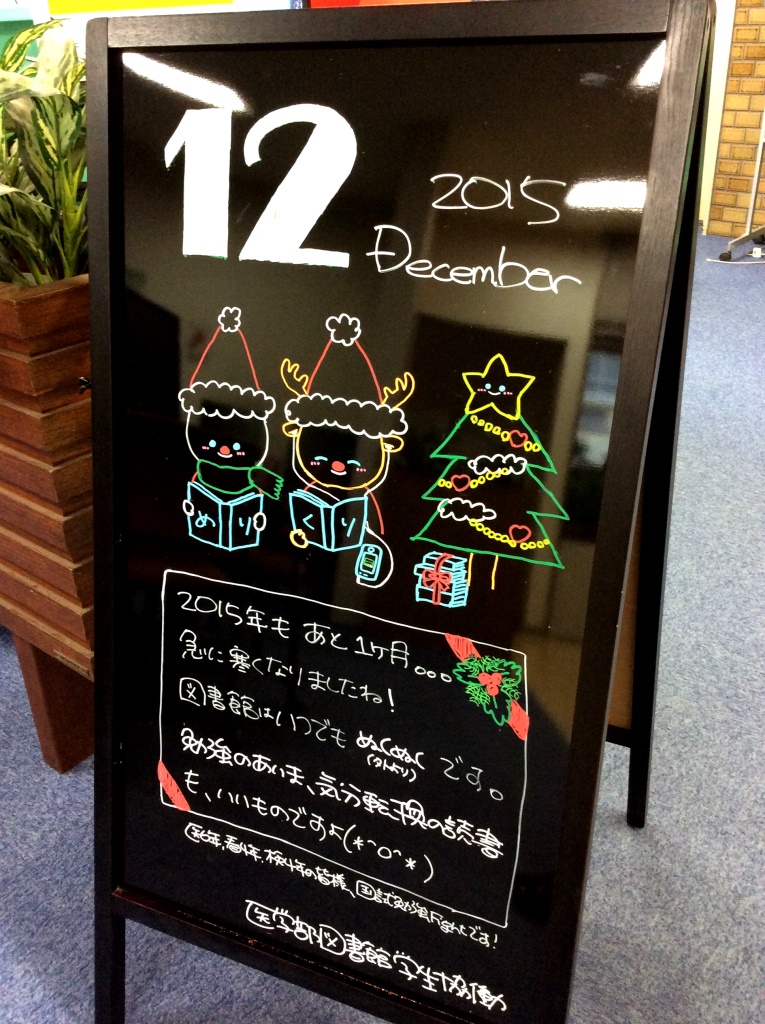 12
2015
December
めり
くり
2015年も あと1ヶ月。。。
急に寒くなりましたね!
図書館はいつでも ぬくぬく です。
(外より)
勉強のあいま、気分転換の読書
も、いいものですよ(*^o^*)
医6年、看4年、検4年の皆様、国試勉強ファイトです!
医学部図書館学生協働